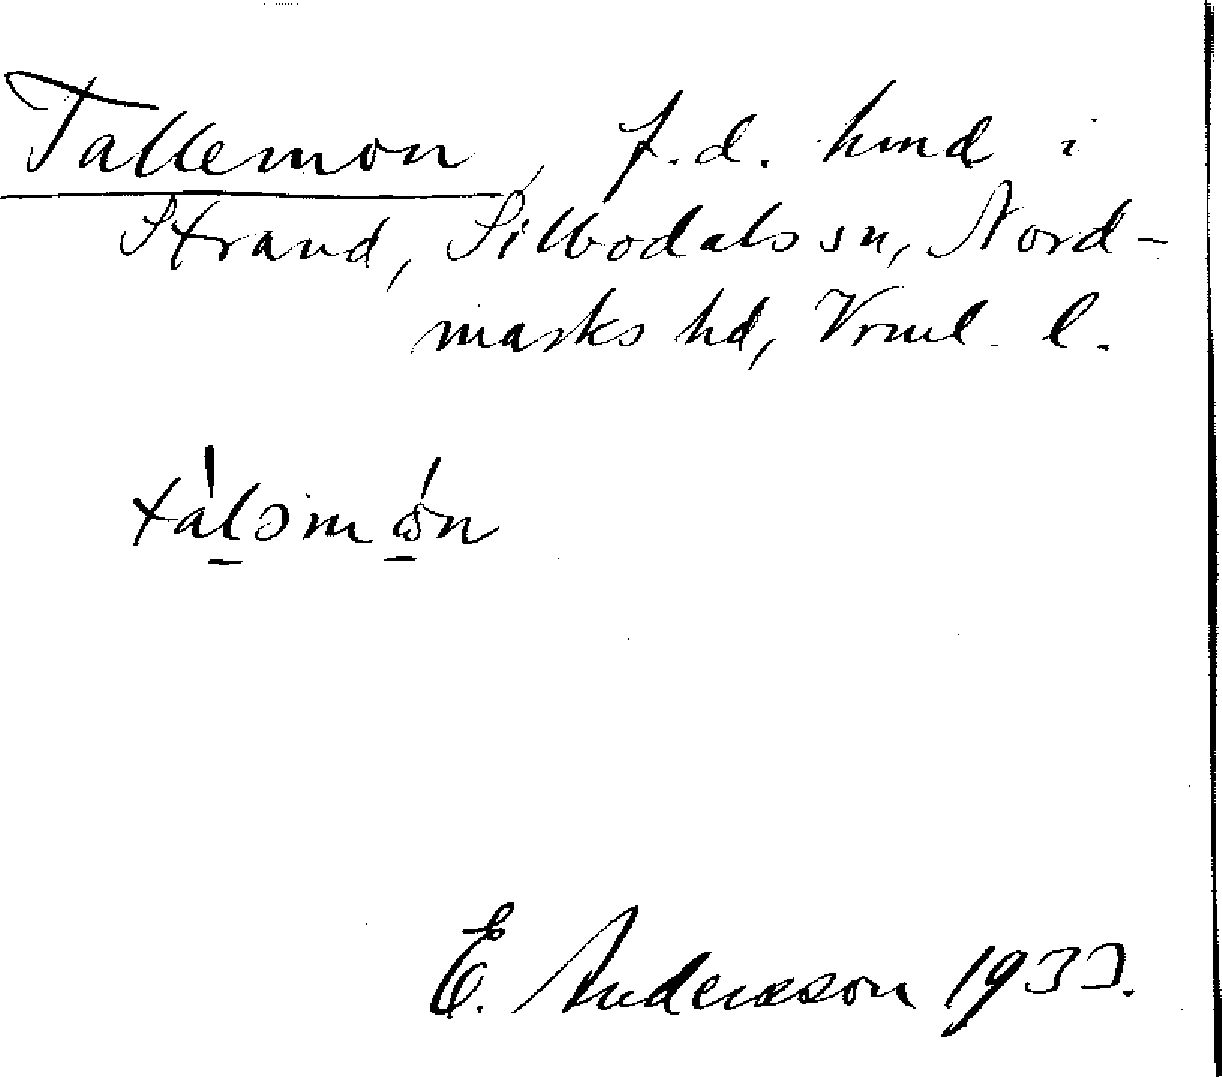 Tallemon, f.d. hmd i
Strand, Silbodals sn, Nord-
marks hd, Vrml. l.
tàlǝmǿn
E. Andersson 1933.